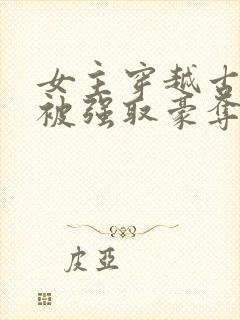 女主穿越古
被强取豪夺
皮亞